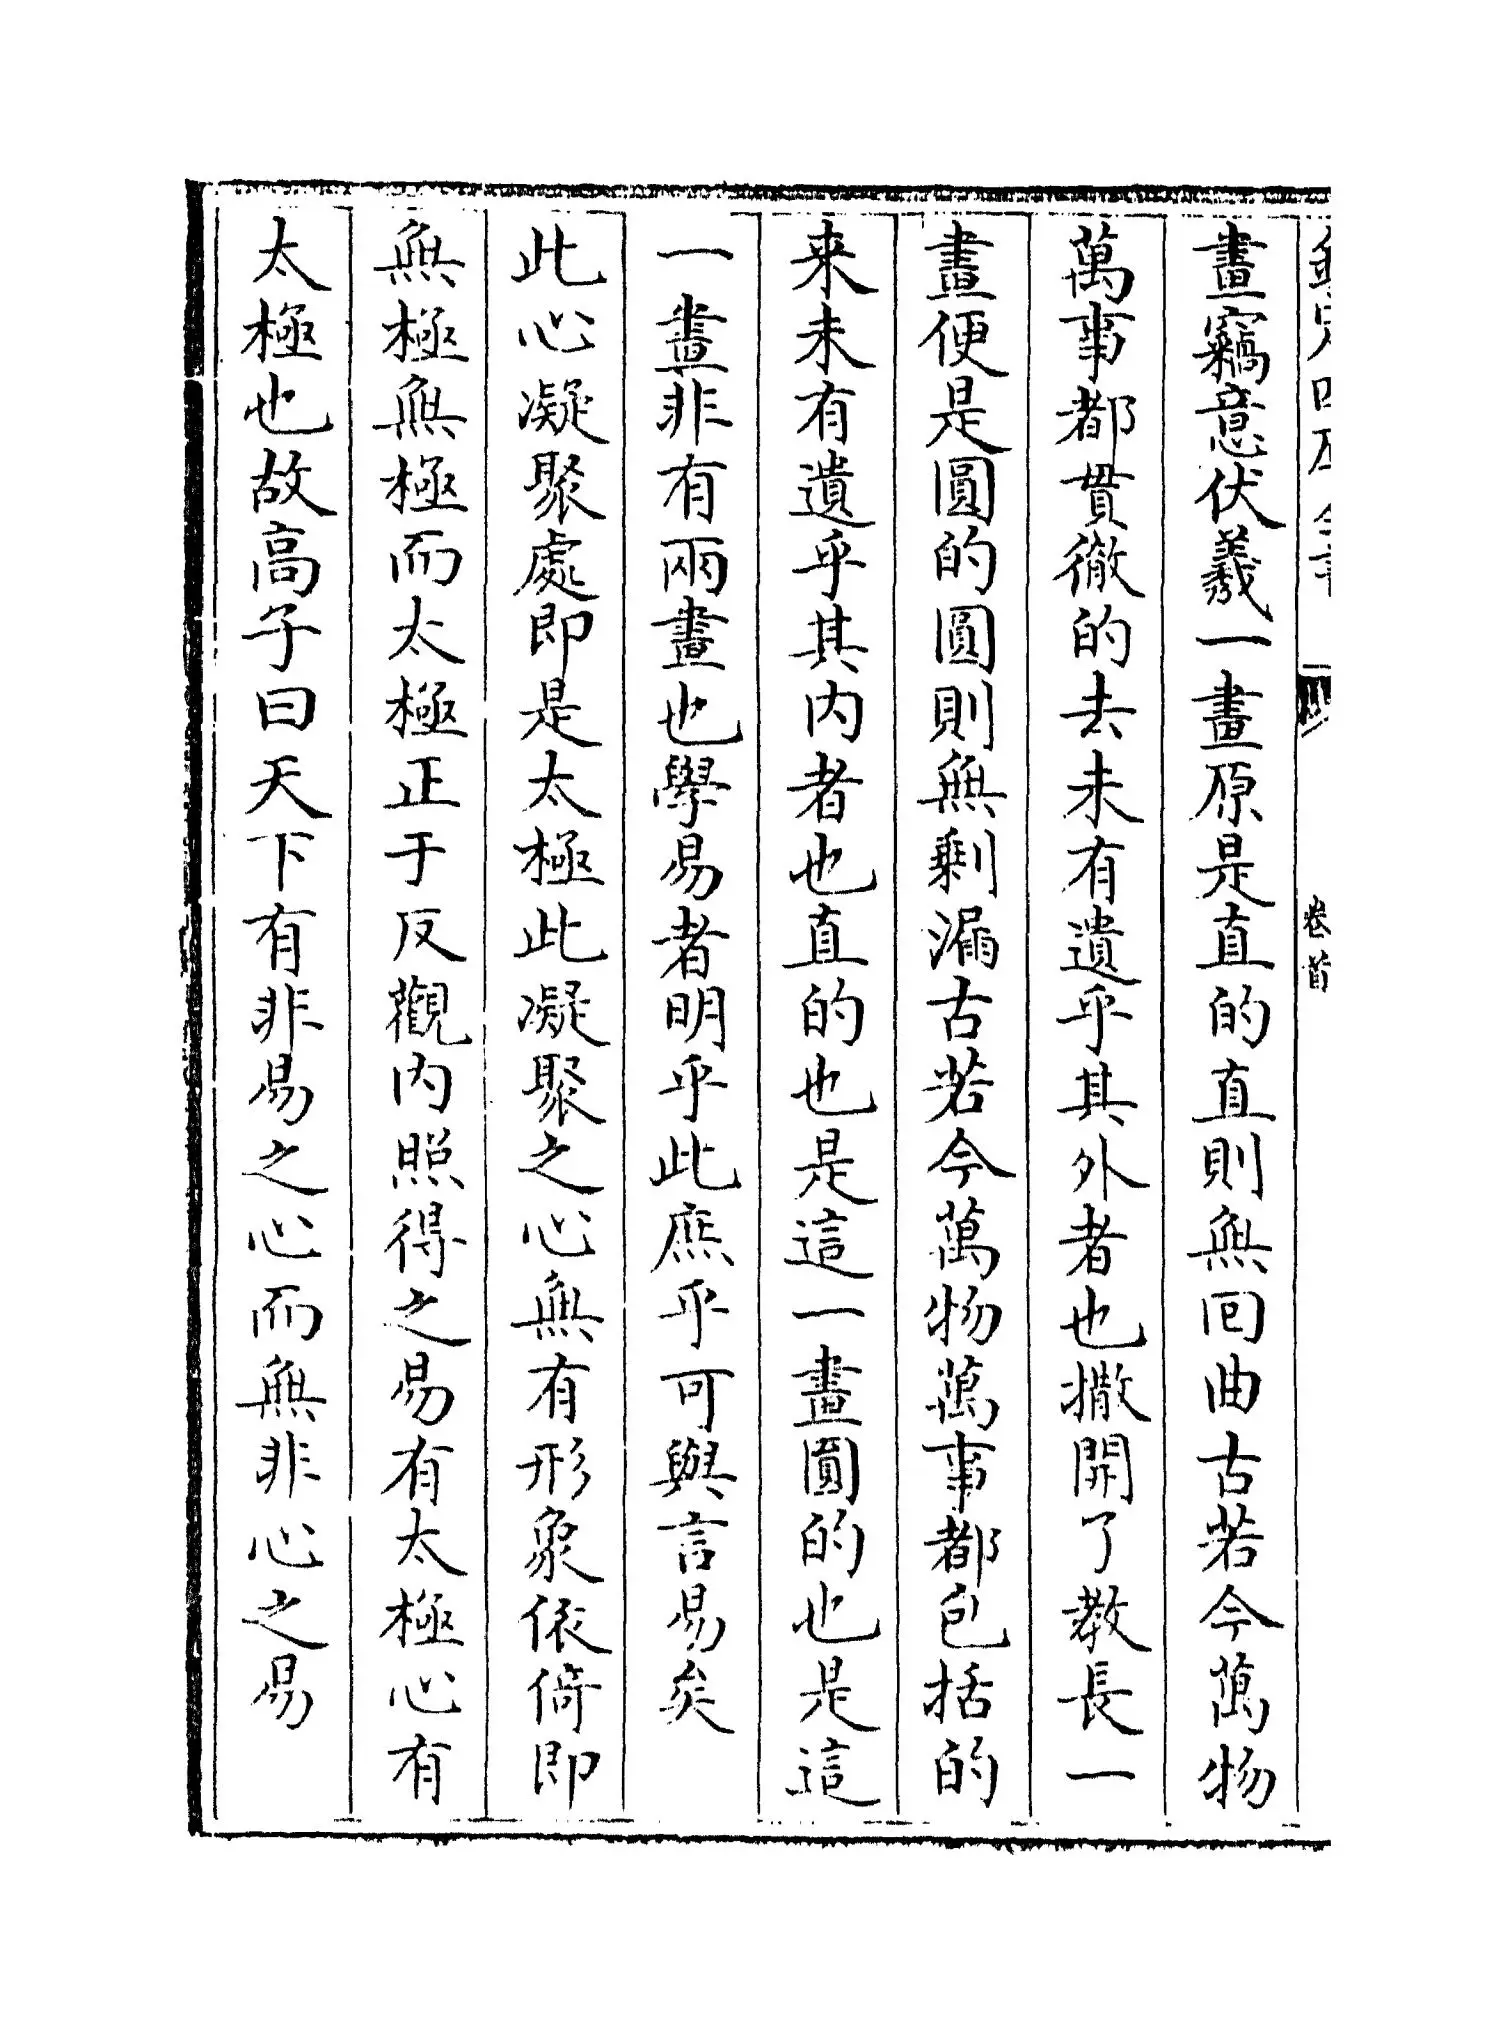 欽定四庫全書
卷首
畫竊意伏羲一畫原是直的直則無回曲古若今萬物
萬事都貫徹的去未有遺乎其外者也撒開了教長一
畫便是圓的圓則無剩漏古若今萬物萬事都包括的
来未有遺乎其内者也直的也是這一畫圓的也是這
一畫非有兩畫也學易者明乎此庶乎可與言易矣
此心凝聚處即是太極此凝聚之心無有形象依倚即
無極無極而太極正于反觀内照得之易有太極心有
太極也故高子曰天下有非易之心而無非心之易